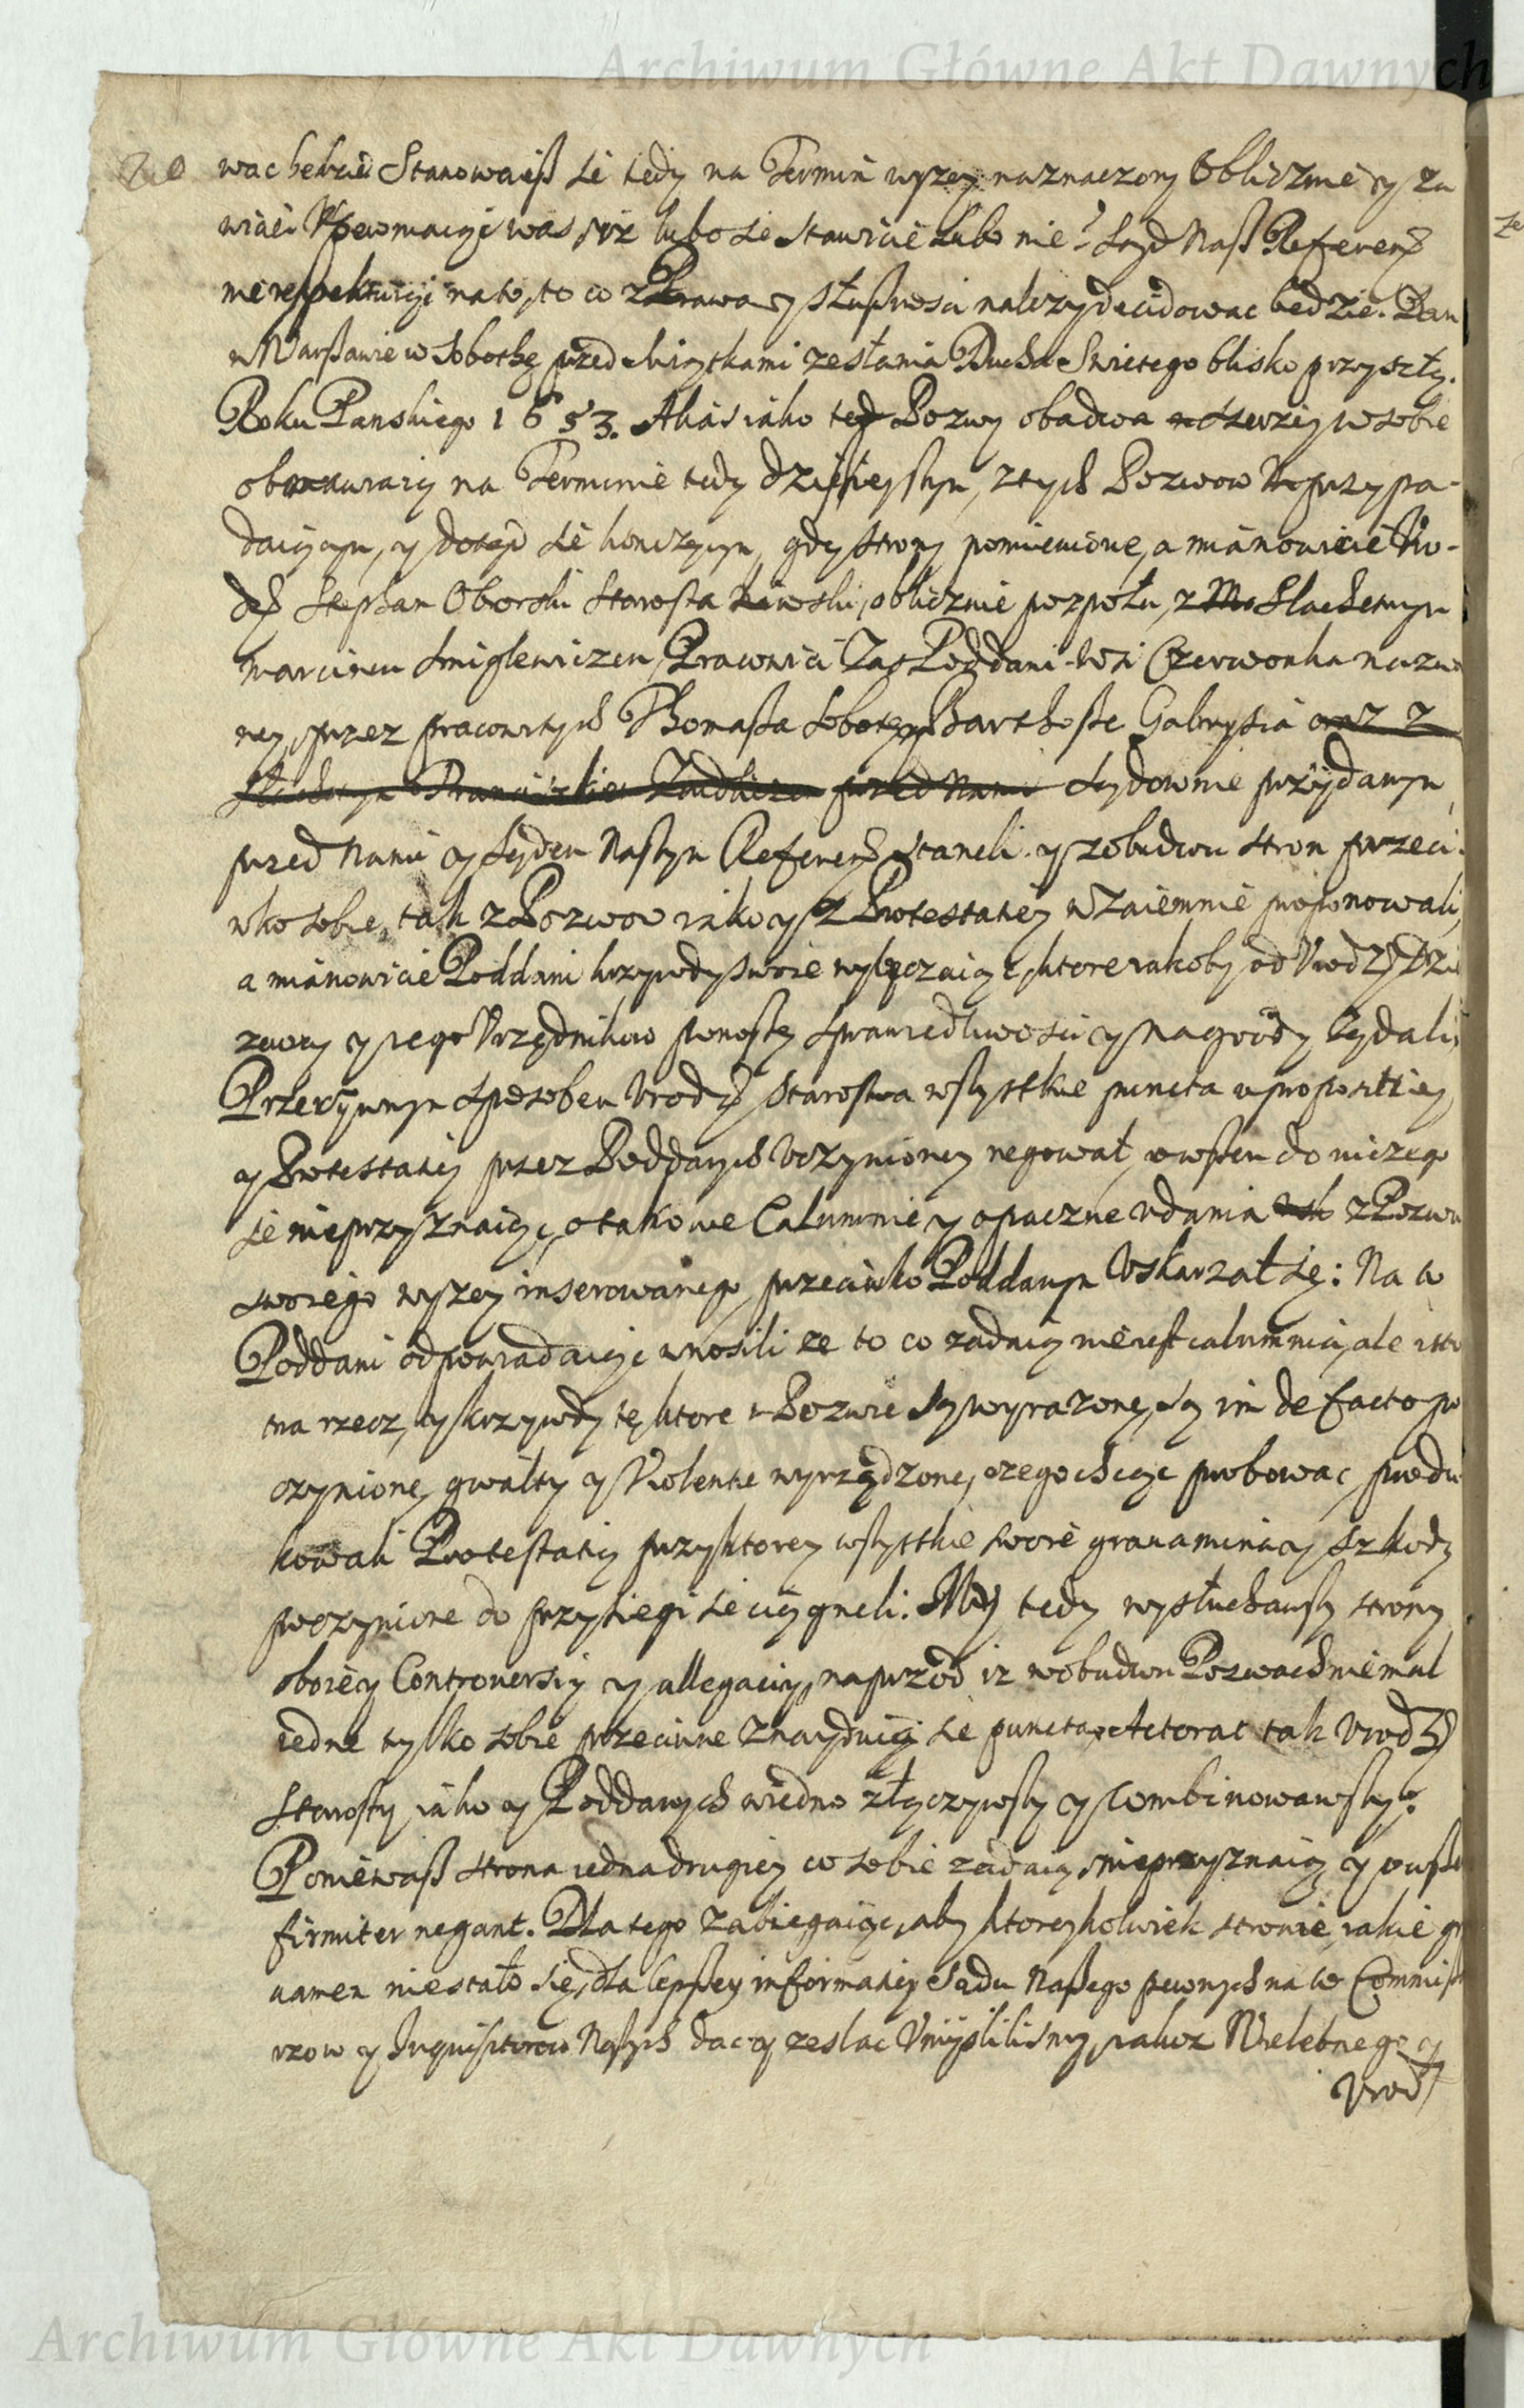 Archiwum Główne Akt Dawnych
wac będzie Stanowcieß sie tedy na Termin wyzey naznaczony Oblicznie y za
wicie Vpewniaiąc was isz lubo sie stawicie lubo nie, Sąd Naß Referens
nierespektuiąc na to, to co z Prawa y słußnosci nalezy decidowac będzie. Dan
w Warßawie w Sobothę przed Swiątkami zesłania Ducha Swietego blisko przyszły.
Roku Panskiego 1653. A iako te Pozwy obadwa szerzey w sobie
na Terminie tedy dzisieyszym, z tych Pozwow przypa-
daiącym, y dotąd sie konczącym, gdy strony pomienione, a mianowicie Vro-
dz Stephan Oborski Starosta oblicznie pospołu, z Slachetnym
Marcinem Smiglewiczem, Zas Poddani wsi Czerwonka nazwa
ney, przez pracowitych Thomasza Barthosza Gabrysia oraz z
przed Nami Sądownie przydanym
przed Nami y Sądem Naszym Referens stanęli y z obudwu stron przeci-
wko sobie, tak z Pozwow iako y z Protestatiey wzaiemnie proponowali,
a mianowicie Poddani krzywdy swoie wyliczaiąc, ktore iakoby od Vrodz Dzie
rzawcy y iego Vrzędnikow ponoszą sprawiedliwosci y nagrody ządali,
Przeciwnym sposobem Vrodz Starosta wszystkie puncta w propositiey
y Protestatiey przez Poddanych Vczynioney negował, owszem do niczego
sie nieprzyznaiąc, o takowe Calumnie y opaczne vdania z Pozwu
swoiego wyzey inserowanego, przeciwko Poddanym Vskarzał się: Na to
Poddani odpowiadaiąc wnosili ze to co zadaią nie iest calumnia, ale isto
tna rzecz, y krzywdy te, ktore w Pozwie są wyrazone, są im de facto po
czynione, gwałty y Violentie wyrządzone, czego chcąc probowac, produ
kowali Protestatią przy ktorey wszytkie swoie gravamina y szkody
poczynione do przysięgi sie ciągneli. My tedy wysłuchawszy strony
oboiey Controversiy y allegaciy, naprzod iz w obudwu Pozwach niemal
iedne tylko sobie przeciwne znayduią sie puncta, Actorat tak Vrodz
Starosty iako y Poddanych wiedno złączywszy y combinowawszy:
Ponieważ strona iedna drugiey co sobie zadaią, nieprzyznaią y owsze
firmiter negant. Dla tego zabiegaiąc, aby ktoreykolwiek stronie, iakie gra
vamen niestało się, dla lepßey informatiey Sądu Naßego pewnych na to Commiss
rzow y Inquisitorow Naszych dac y zesłac Vmyslilismy, iakoz Wielebnego y
Vrod
Archiwum Główne Akt Dawnych